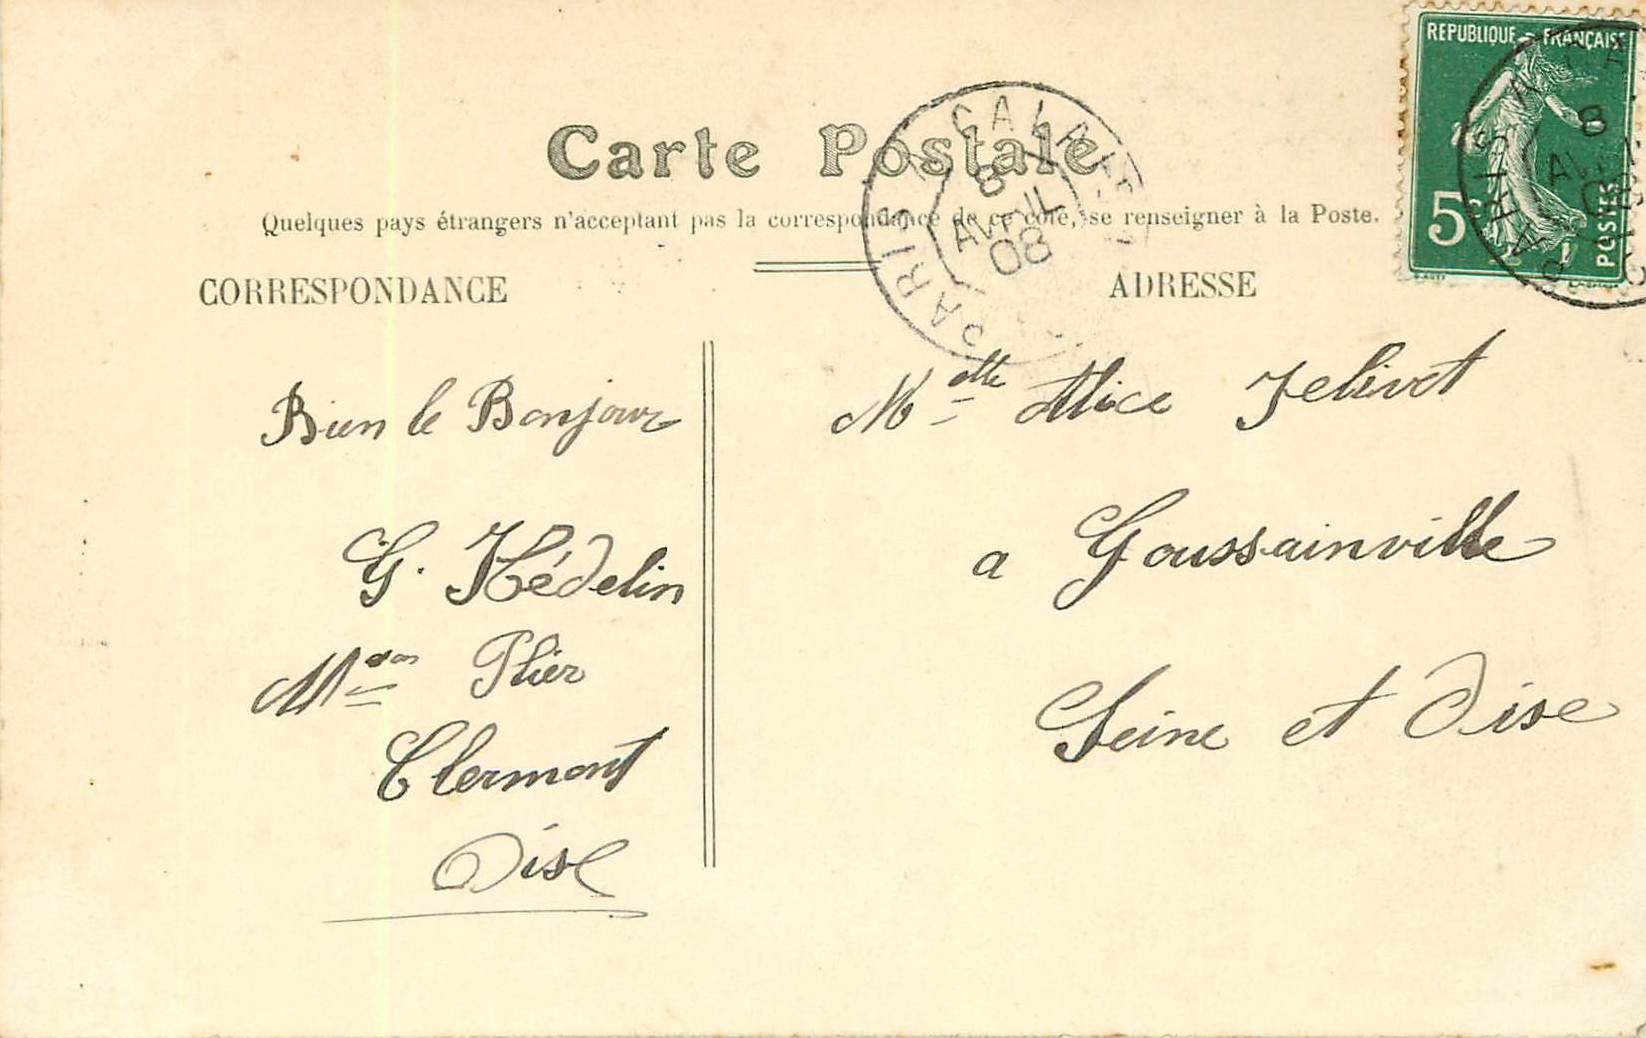 Carte Postale
Quelques pays étrangers n'acceptent pas la correspondance de ce côté, se renseigner à la Poste.
CORRESPONDANCE
ADRESSE
REPUBLIQUE FRANÇAISE
5c POSTES
8
AVRIL
08
PARIS
Bien le Bonjour
G. Hédelin
Mon Plier
Clermont
Oise
Melle Alice Jelivot
a Goussainville
Seine et Oise